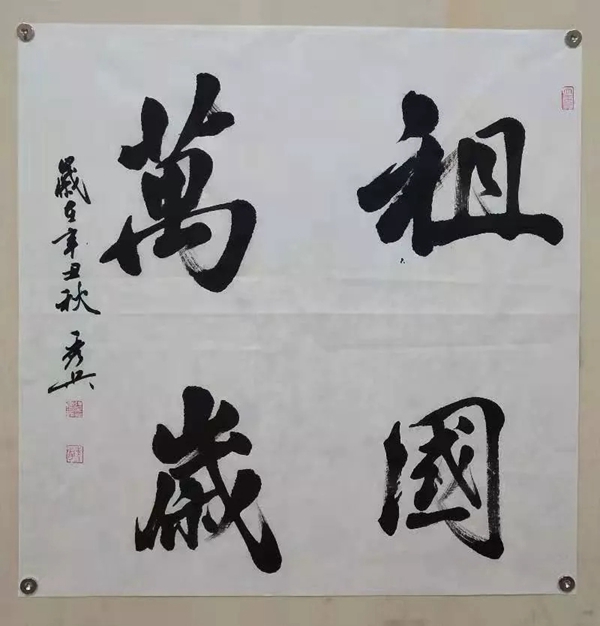 祖國
萬歲
歲在辛丑秋秀興